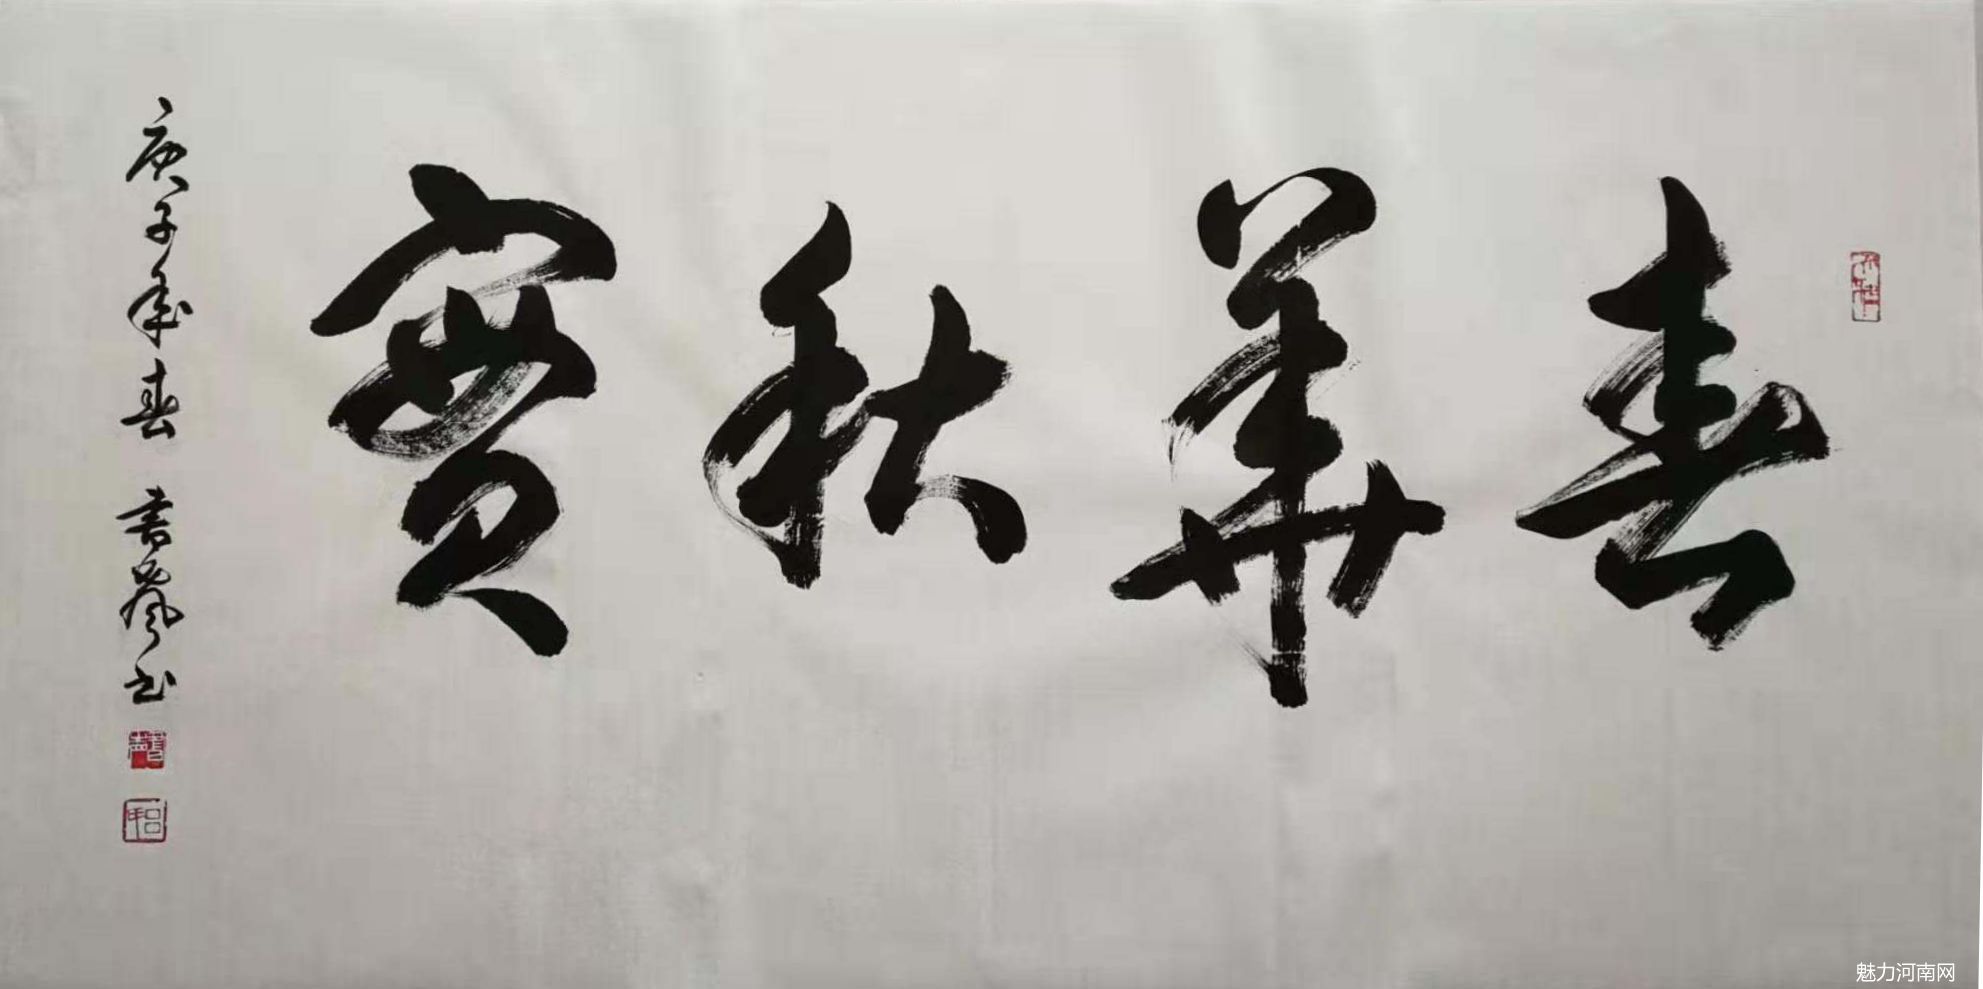 春華秋實
庚子年春 書嵐书
魅力河南网